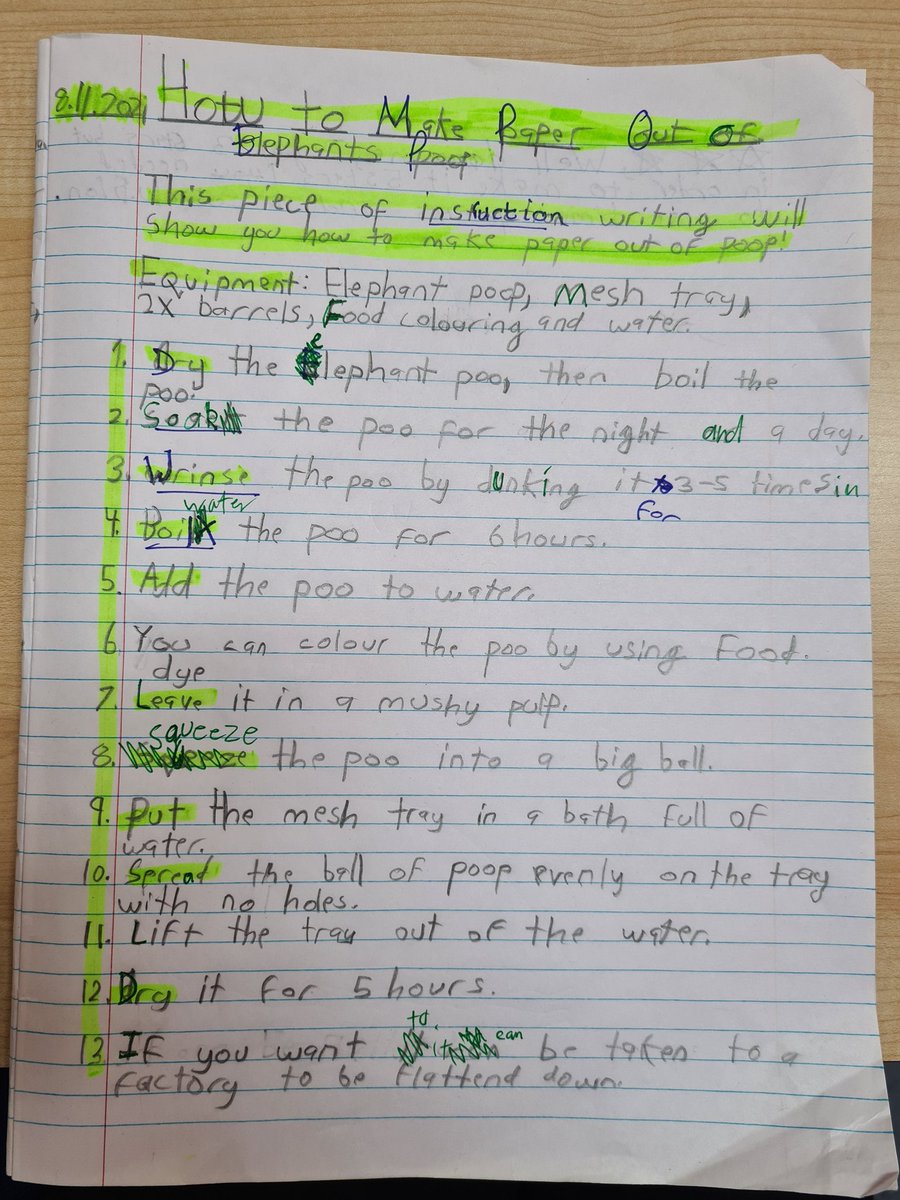 8.11.2021 How to Make Paper Out of
Elephants Poop
This piece of instuction writing will
show you how to make paper out of poop!
Equipment: Elephant poop, Mesh tray,
2X barrels, Food colouring and water.
1. Dry the elephant poo, then boil the
poo.
2. Soak the poo for the night and a day.
3. Wrinse the poo by dunking it 3-5 times in
water for
4. Boil the poo for 6 hours.
5. Add the poo to water.
6 You can colour the poo by using Food.
dye
7. Leave it in a mushy pulp.
squeeze
8. the poo into a big ball.
9. Put the mesh tray in a bath full of
water.
10. Spread the ball of poop evenly on the tray
with no holes.
11. Lift the tray out of the water.
12. Dry it for 5 hours.
13 If you want to it can be taken to a
factory to be flattend down.